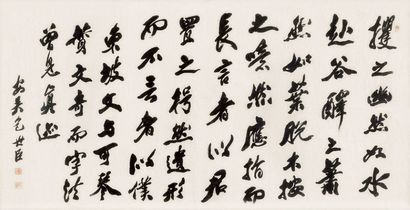 攫之幽然如水
赴谷醳之蕭
然如葉脱木按
之噫然應指而
長言者以君
置之枵然遺形
而不言者以僕
東坡文与可琴
贊文奇而字
曾見真迹
安吳包世臣